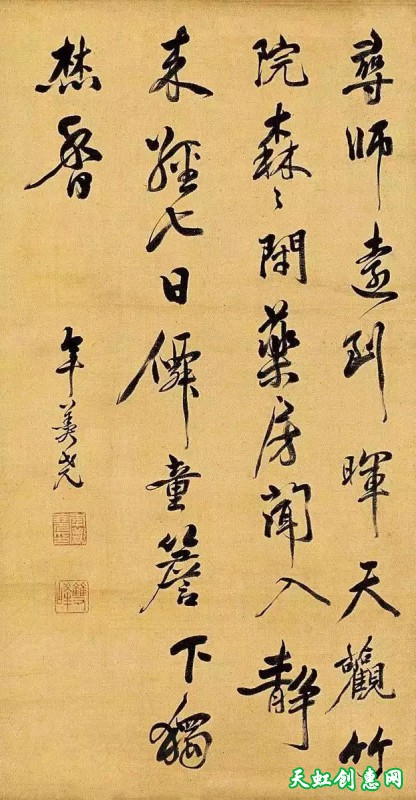 尋師遠到暉天觀竹
院森〻閉藥房聞入靜
來經七日僊童簷下獨
焚香
年羹堯
雙峰
天虹创意网